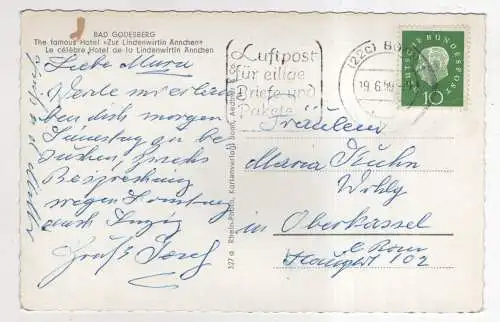 BAD GODESBERG
The famous Hotel »Zur Lindenwirtin Ännchen«
Le célèbre Hotel de la Lindenwirtin Ännchen
Liebe Maria
Werde mir erlau
ben dich morgen
Samstag zu be
suchen, zwecks
Besprechung
wegen Sonntag
nach Sinzig
Gruß Josef
327 a Rhein-Photo, Kartenverlag, Bonn,
Luftpost
für eilige
Briefe und
Pakete
(22c) BO
19.6.
DEUTSCHE BUNDESPOST
10
Fräulein
Maria Kuhn
in Oberkassel
b. Bonn
Hauptstr 102